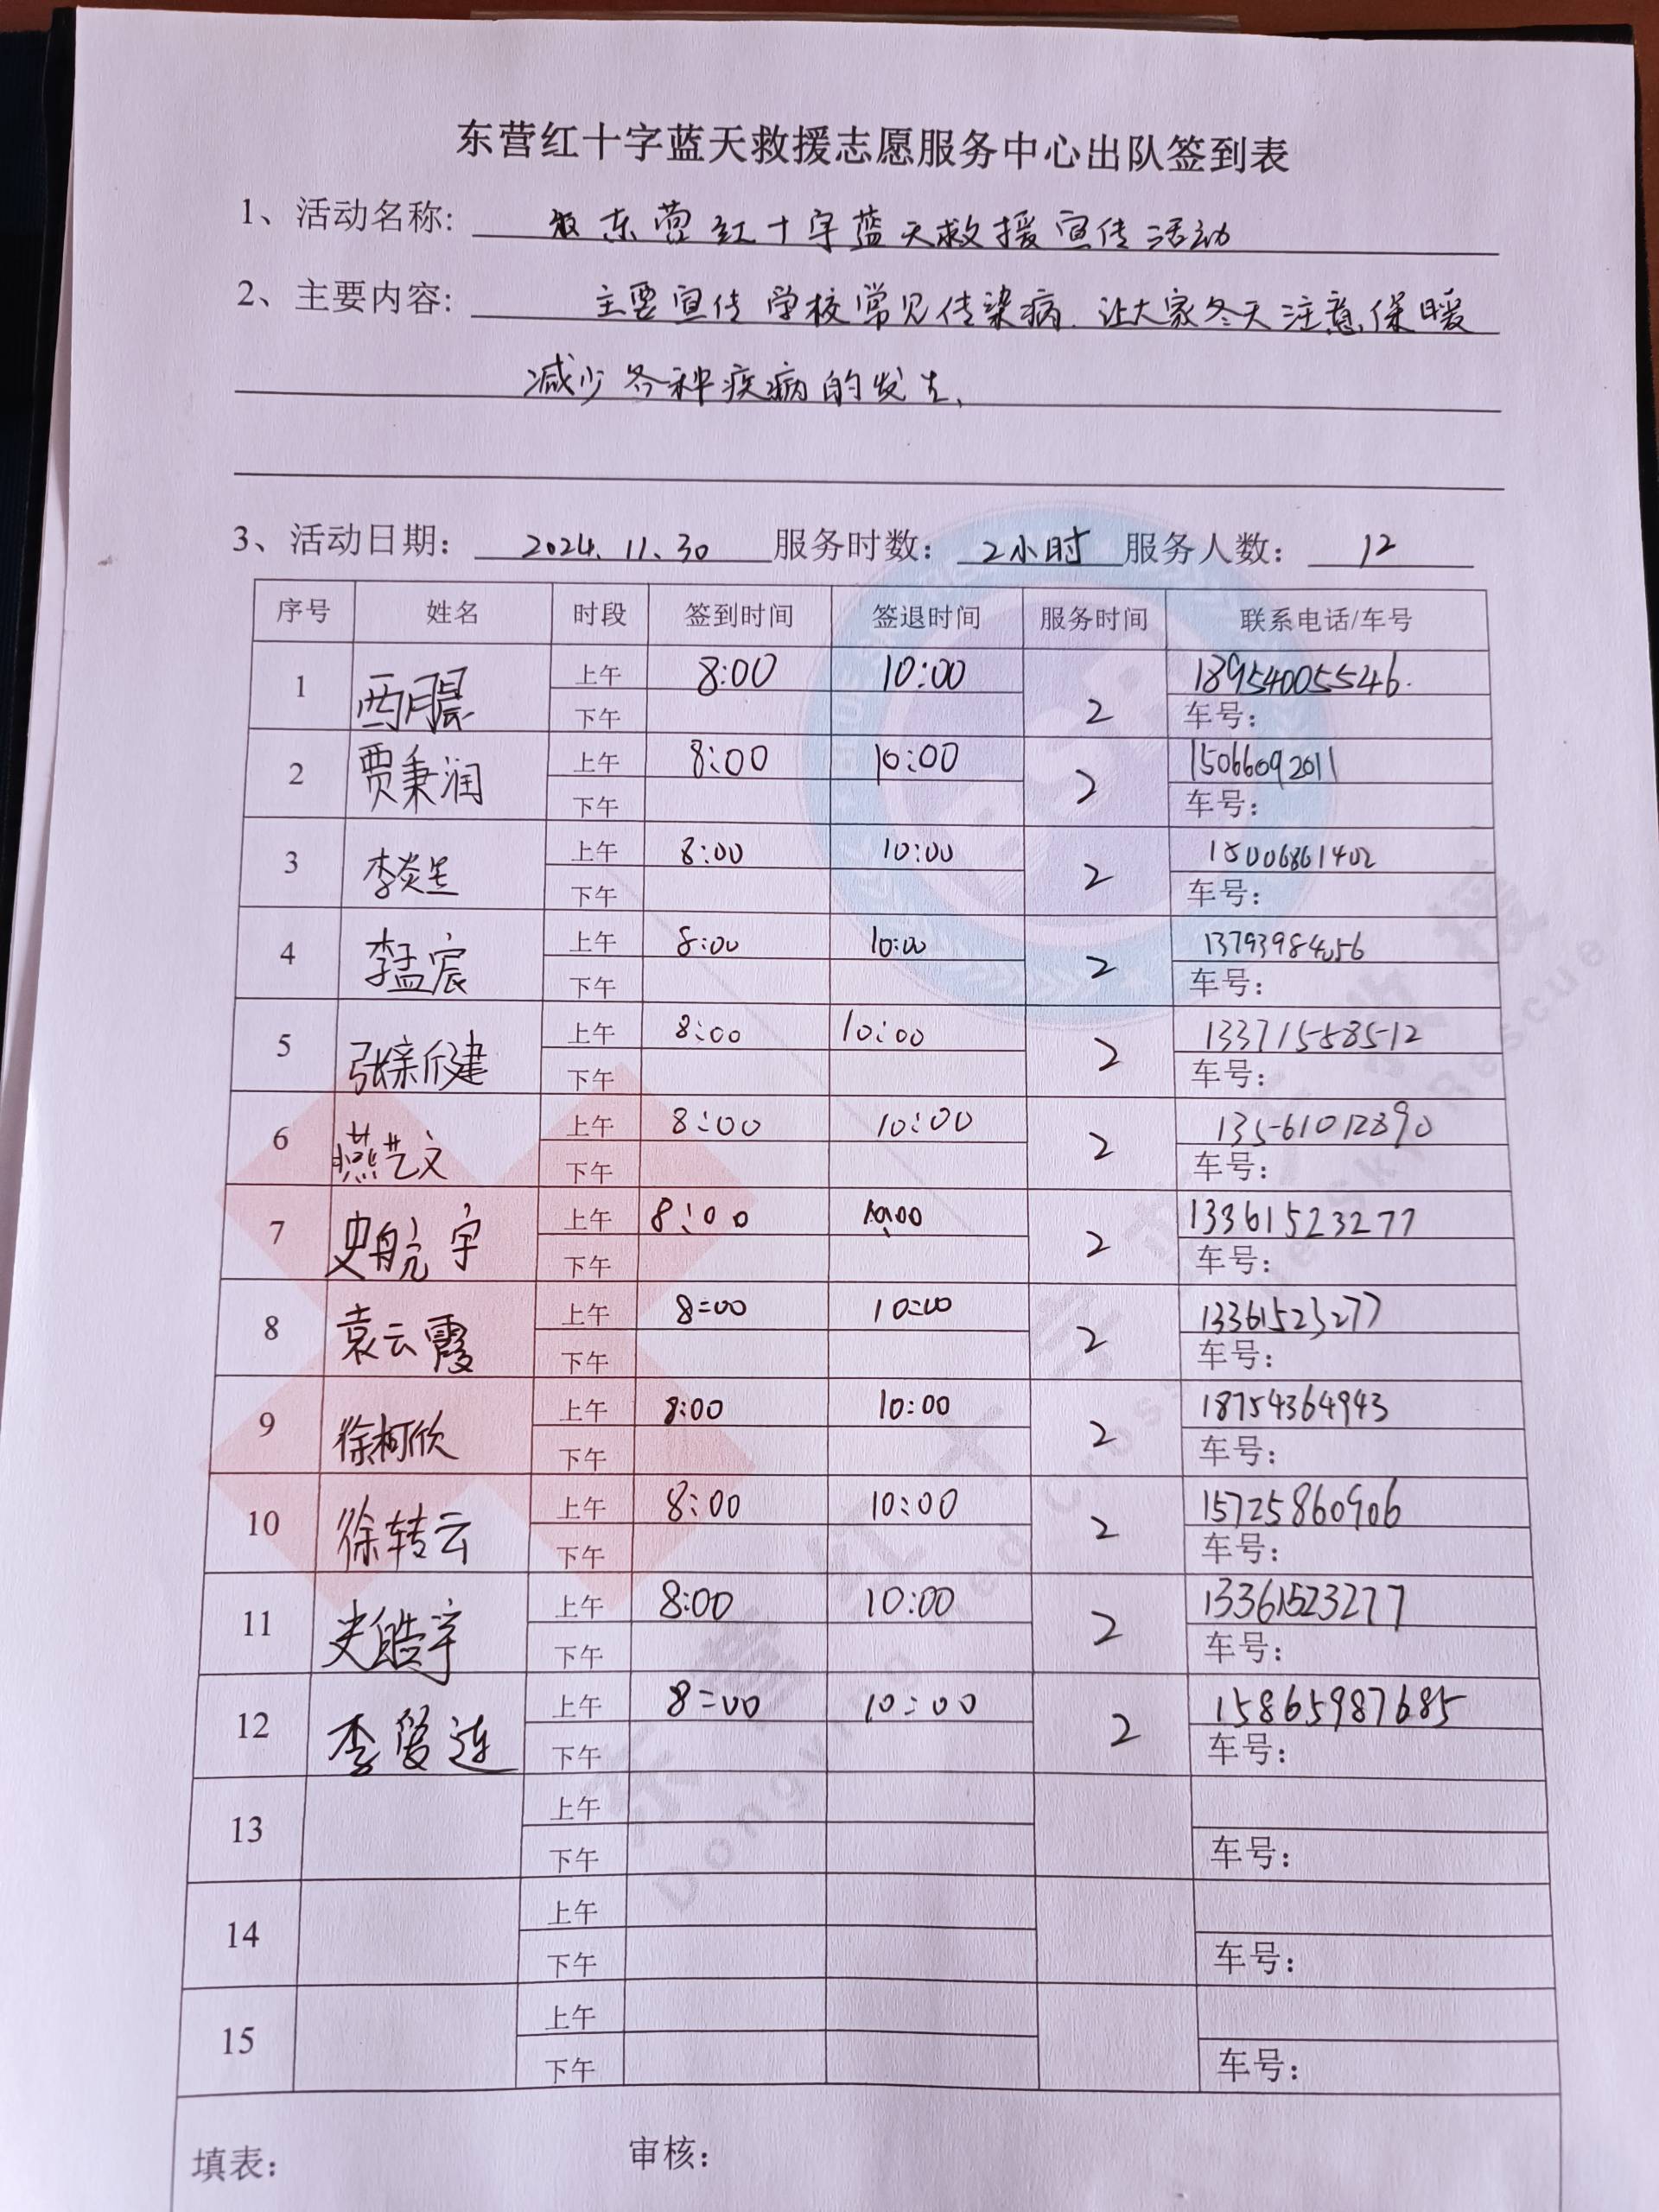 东营红十字蓝天救援志愿服务中心出队签到表
1、活动名称: 东营红十字蓝天救援宣传活动
2、主要内容: 主要宣传学校常见传染病.让大家冬天注意保暖
减少各种疾病的发生、
3、活动日期: 2024.11.30 服务时数: 2小时 服务人数: 12
序号 姓名 时段 签到时间 签退时间 服务时间 联系电话/车号
1 西月晨 上午 8:00 10:00 2 18954005546.
下午 车号:
2 贾秉润 上午 8:00 10:00 2 15066092011
下午 车号:
3 李炎 上午 8:00 10:00 2 15006861402
下午 车号:
4 李孟宸 上午 8:00 10:00 2
下午 车号:
5 上午 8:00 10:00 2 13371558512
下午 车号:
6 燕艺文 上午 8:00 10:00 2 13561012890
下午 车号:
7 史航宇 上午 8:00 10:00 2 13361523277
下午 车号:
8 袁云霞 上午 8:00 10:00 2 13361523277
下午 车号:
9 徐柯欣 上午 8:00 10:00 2 18754364943
下午 车号:
10 徐转云 上午 8:00 10:00 2 15725860906
下午 车号:
11 史皓宇 上午 8:00 10:00 2 13361523277
下午 车号:
12 李爱连 上午 8:00 10:00 2 15865987685
下午 车号:
13 上午
下午 车号:
14 上午
下午 车号:
15 上午
下午 车号:
填表: 审核:
东营红十字蓝天救援
Dongying Red Cross Blue Sky Rescue